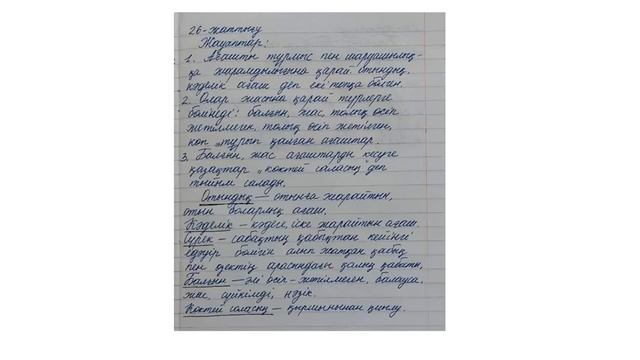 26-жаттығу
Жауаптар:
1. Ағашты тұрмыс пен шаруашылық-
қа жарамдылығына қарай отындық,
кәделік ағаш деп екі топқа бөлген.
2. Олар жасына қарай түрлерге
бөлінеді: балғын, жас толық өсіп
жетілмеген, толық өсіп жетілген,
көп тұрып қалған ағаштар.
3. Балғын, жас ағаштарды кесуге
қазақтар "көктей соласың" деп
тыйым салады.
Отындық — отынға жарайтын,
отын боларлық ағаш.
Кәделік — кәдеге, іске жарайтын ағаш.
Сүрек — сабақтың қабықтан кейінгі
бөлігін алып жатқан қабық
пен өзектің арасындағы қалың қабаты.
Балғын — әлі өсіп-жетілмеген, балауса,
жас, сүйкімді, нәзік.
Көктей соласың — қыршынынан қиылу.